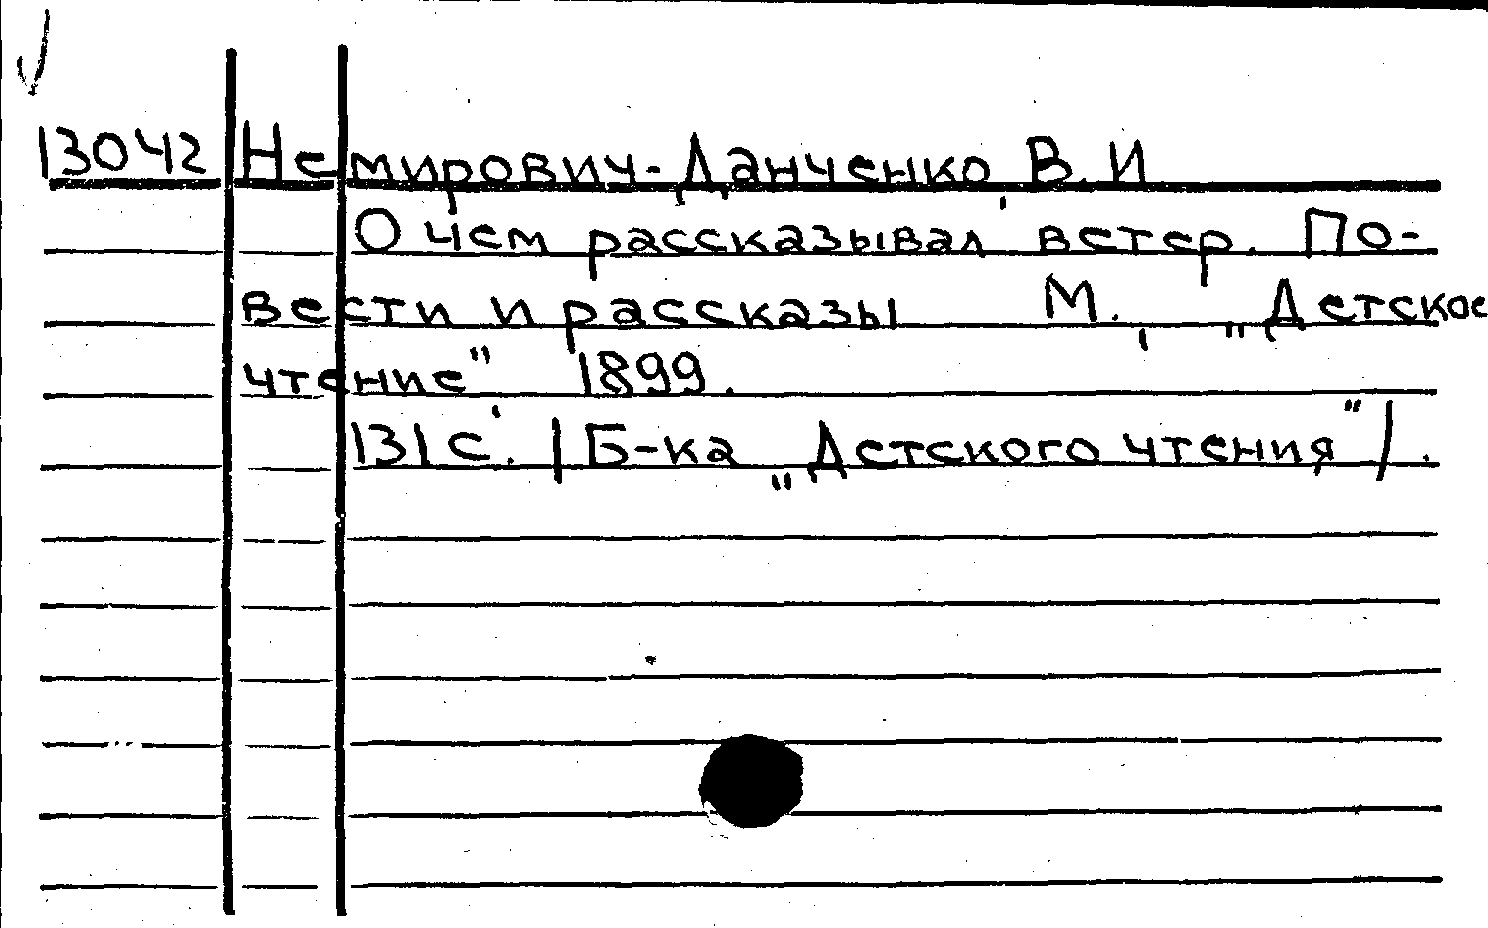 13042 Немирович-Данченко, В.И
О чем рассказывал ветер. По-
вести и рассказы М., „Детское
чтение", 1899.
131 с. /Б-ка „Детского чтения"/.